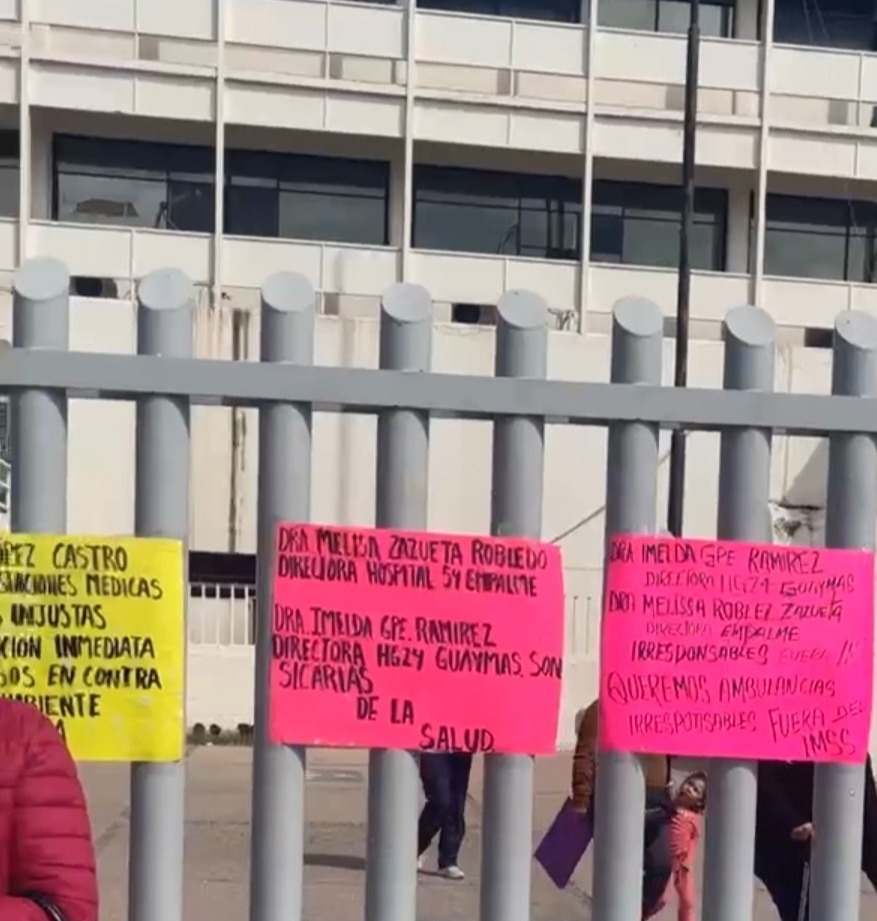 PEZ CASTRO
CIONES MEDICAS
INJUSTAS
CION INMEDIATA
SOS EN CONTRA
BIENTE
A
DRA MELISA ZAZUETA ROBLEDO
DIRECTORA HOSPITAL 54 EMPALME
DRA. IMELDA GPE. RAMIREZ
DIRECTORA HG24 GUAYMAS. SON
SICARIAS
DE LA
SALUD.
DRA IMELDA GPE RAMIREZ
DIRECTORA HG24 GUAYMAS
DRA MELISSA ROBLEZ ZAZUETA
DIRECTORA EMPALME
IRRESPONSABLES FUERA
QUEREMOS AMBULANCIAS
IRRESPONSABLES FUERA DEL
IMSS